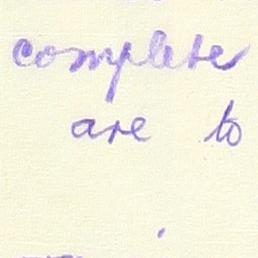 complete
are to